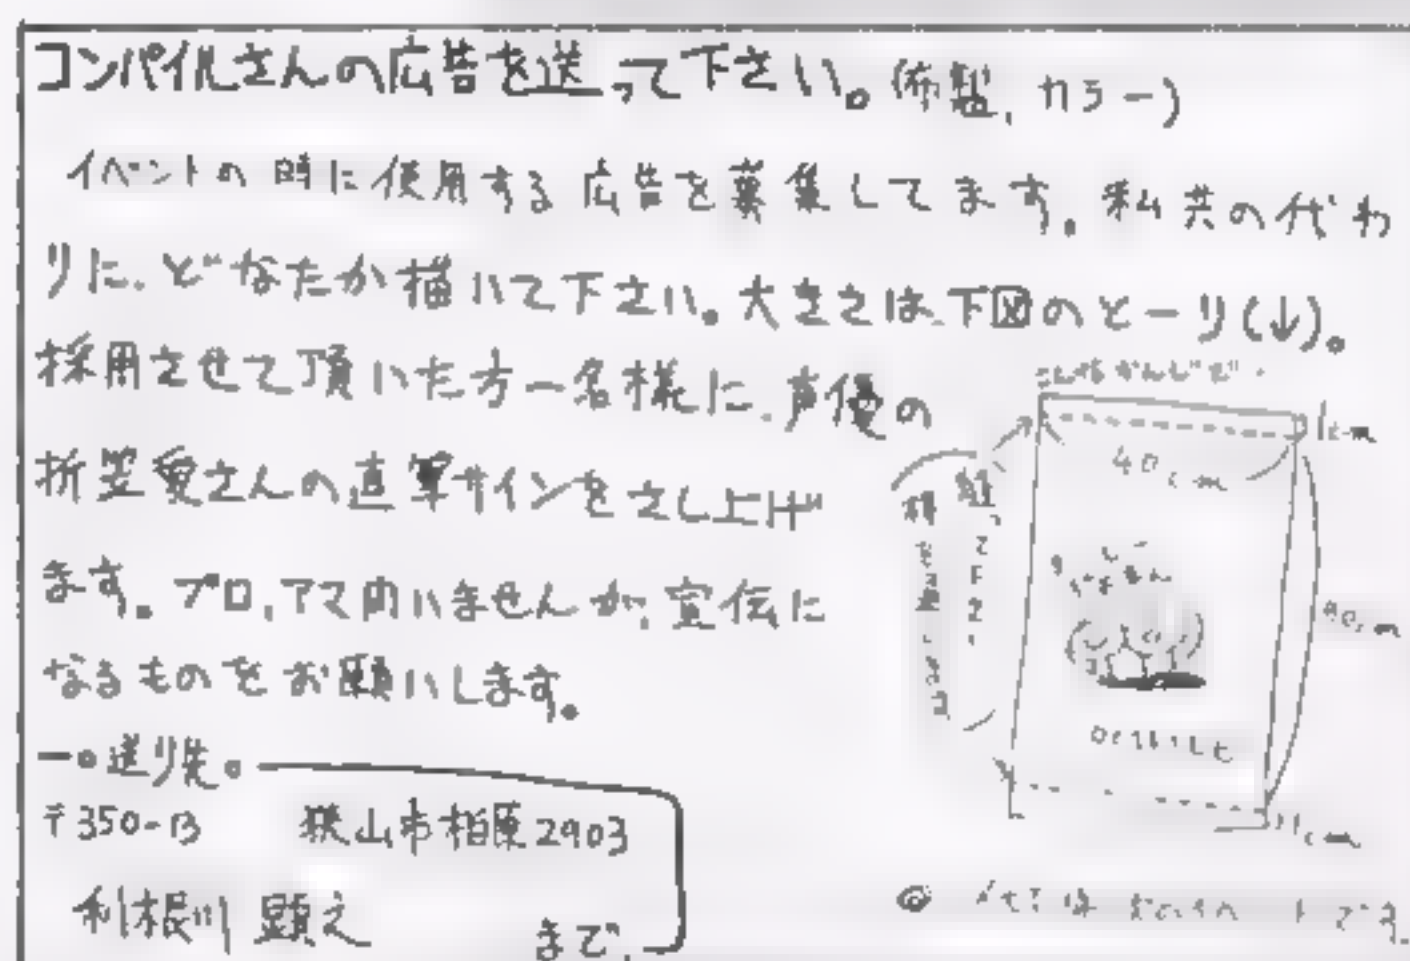 コンパイルさんの広告を送って下さい。(布製,カラー)
イベントの時に使用する広告を募集してます。私共の代わ
りに、どなたか描いて下さい。大きさは下図のとーり(↓)。
採用させて頂いた方一名様に、声優の
折笠愛さんの直筆サインをさし上げ
ます。プロ,アマ問いませんが、宣伝に
なるものをお願いします。
送り先。
〒350-13 狭山市柏原2903
利根川 顕之 まで。
こんなかんじで
1cm
40cm
1cm